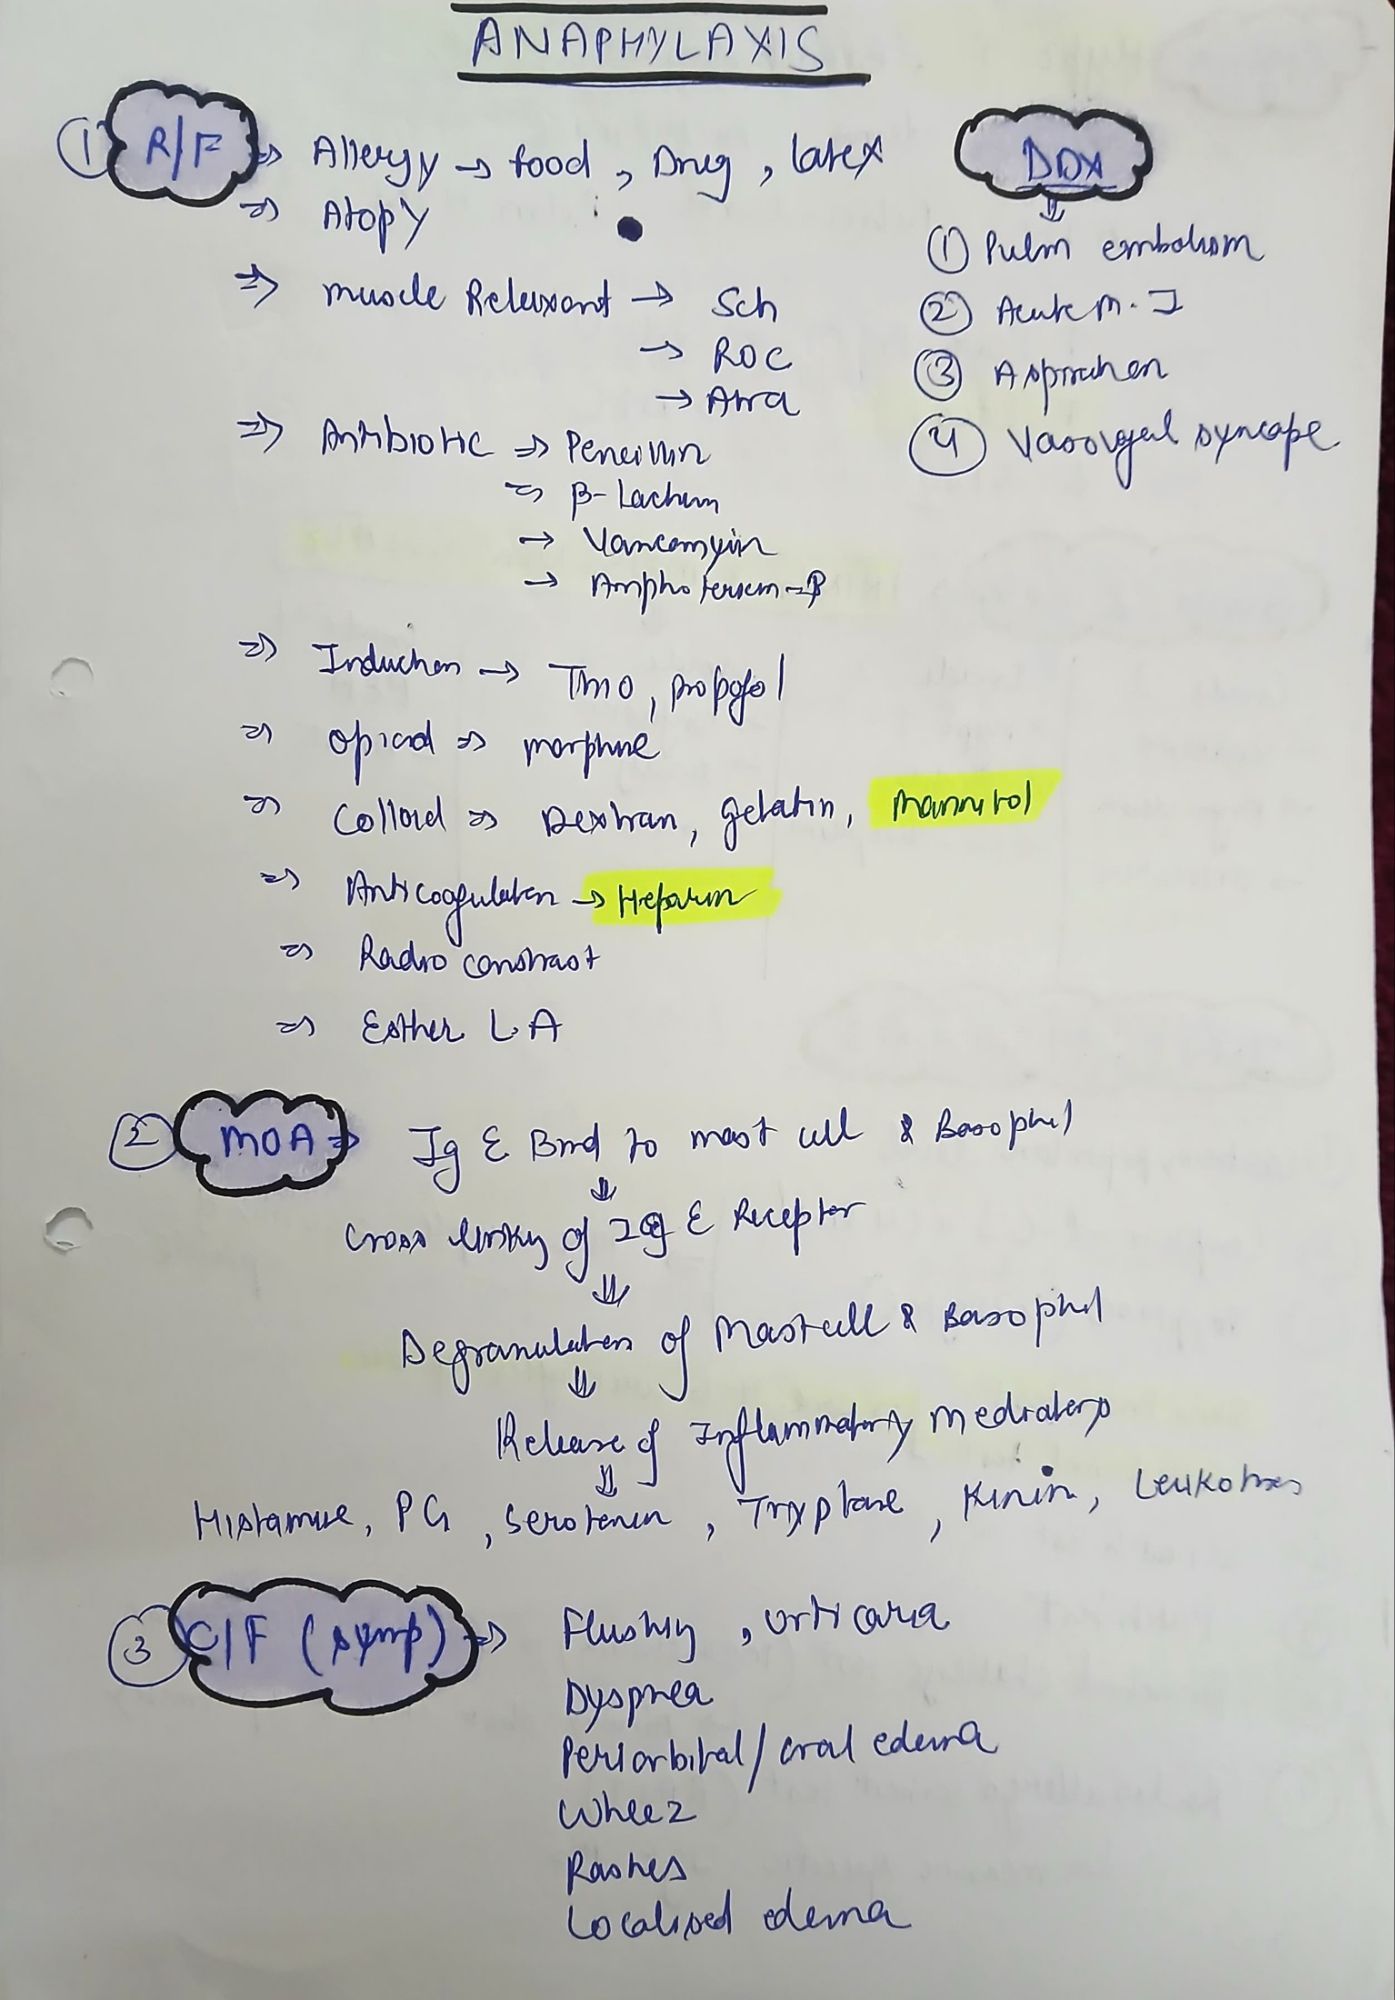 ANAPHYLAXIS
① R/F ⇒ Allergy → food, Drug, latex
⇒ Atopy
⇒ muscle Relaxant → Sch
→ ROC
→ Atra
⇒ Antibiotic ⇒ Pencillin
⇒ β-Lactum
→ Vancomyin
→ Amphotericin-B
⇒ Induction → TMO, propofol
⇒ opioid ⇒ morphine
⇒ Colloid ⇒ Dextran, gelatin, Mannitol
⇒ Anticoagulation → Heparin
⇒ Radio constrast
⇒ Esther L.A
DDX
① Pulm embolism
② Acute M.I
③ Aspiration
④ Vasovgal syncope
② MOA ⇒ Ig E Bind to mast cell & Basophil
Cross linking of IgE Receptor
Degranulation of Mastcell & Basophil
Release of Inflammatory Mediators
Histamine, PG, Serotenin, Tryptase, Kinin,
③ C/F (symp) ⇒ Flushing, urticaria
Dyspnea
Periorbital/oral edema
Wheez
Rashes
Localised edema